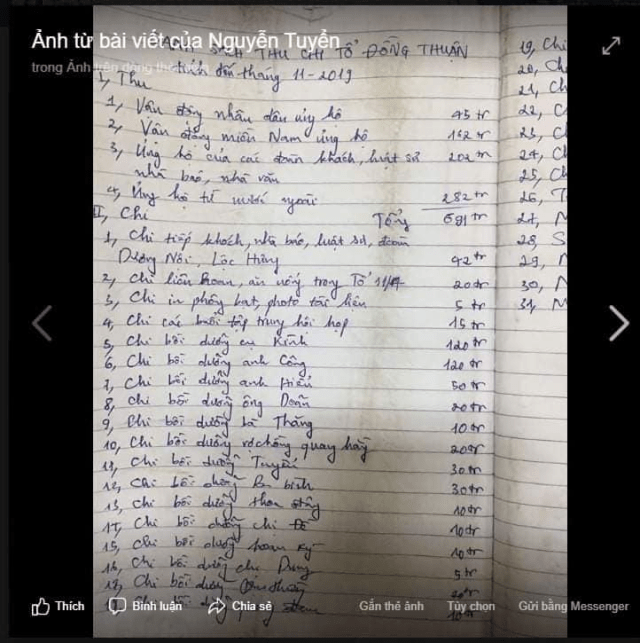 Ảnh từ bài viết của Nguyễn Tuyển
trong Ảnh trên dòng thời gian
SÁCH THU CHI TỔ ĐỒNG THUẬN
tính đến tháng 11-2019
I, Thu
1, Vận động nhân dân ủng hộ 45 tr
2, Vận động miền Nam ủng hộ 162 tr
3, Ủng hộ của các đoàn khách, luật sư 202 tr
nhà báo, nhà văn
4, Ủng hộ từ nước ngoài 282 tr
Tổng 691 tr
II, Chi
1, Chi tiếp khách, nhà báo, luật sư, đoàn
Dương Nội, Lộc Hưng 42 tr
2, Chi liên hoan, ăn uống trong Tổ 20 tr
3, Chi in phông bạt, photo tài liệu 5 tr
4, Chi các buổi tập trung hội họp 15 tr
5, Chi bồi dưỡng cụ Kình 120 tr
6, Chi bồi dưỡng anh Công 120 tr
7, Chi bồi dưỡng anh Hiểu 50 tr
8, Chi bồi dưỡng ông Doãn 20 tr
9, Chi bồi dưỡng bà Thăng 10 tr
10, Chi bồi dưỡng quay 20 tr
11, Chi bồi dưỡng Tuyển 30 tr
12, Chi bồi dưỡng 30 tr
13, Chi bồi dưỡng 10 tr
Chi bồi dưỡng chị 10 tr
15, Chi bồi dưỡng 10 tr
16, Chi bồi dưỡng chị Dung 5 tr
Chi bồi dưỡng
Chi bồi dưỡng 10 tr
19, Chi
20, Ch
21, Ch
22, C
23, Cl
24, Cl
25, Cl
26, T
27, N
28, S
29, N
30, N
31, M
Thích Bình luận Chia sẻ Gắn thẻ ảnh Tùy chọn Gửi bằng Messenger